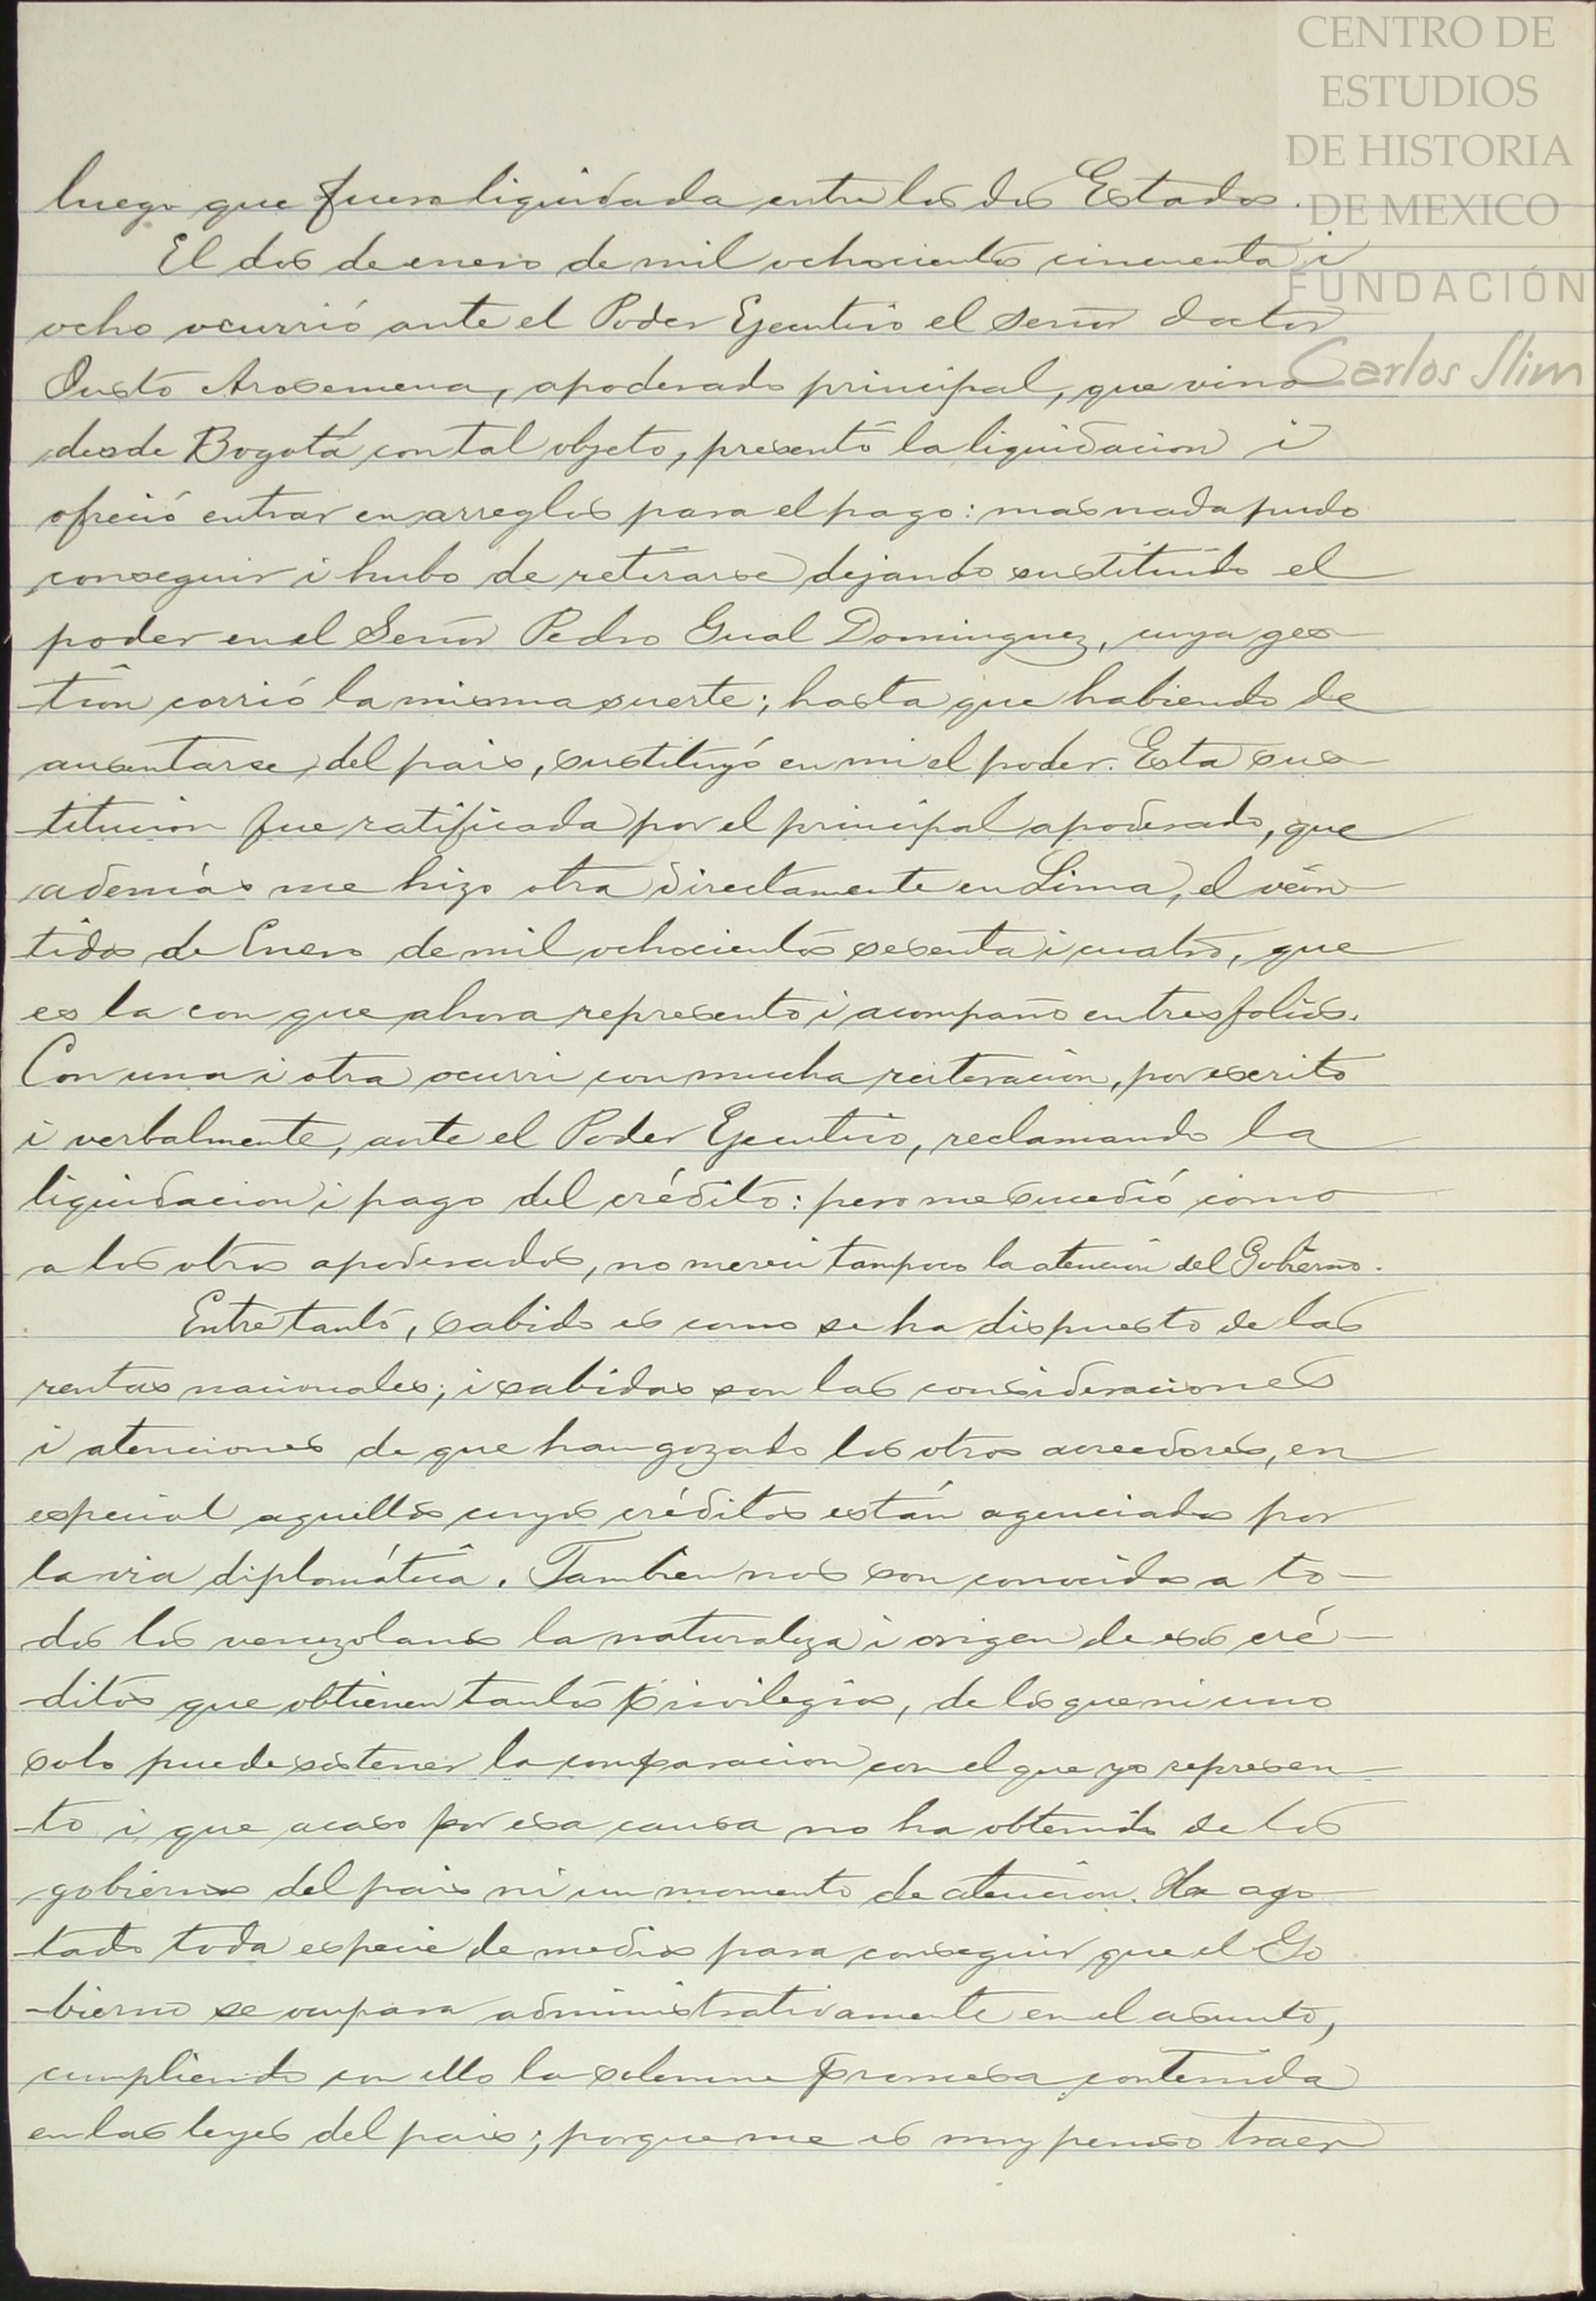 CENTRO DE
ESTUDIOS
DE HISTORIA
DE MEXICO
FUNDACIÓN
Carlos Slim
luego que fuera liquidada entre los dos Estados.
El dos de enero de mil ochocientos cincuenta i
ocho ocurrió ante el Poder Ejecutivo el señor doctor
Justo Arosemena, apoderado principal, que vino
desde Bogotá con tal objeto, presentó la liquidacion i
ofreció entrar en arreglos para el pago: mas nada pudo
conseguir i hubo de retirarse dejando sustituido el
poder en el Señor Pedro Gual Dominguez, cuya ges-
-tion corrió la misma suerte; hasta que habiendo de
ausentarse del pais, sustituyó en mi el poder. Esta sus-
-titucion fue ratificada por el principal apoderado, que
además me hizo otra directamente en Lima, el vein-
tidos de Enero de mil ochocientos sesenta i cuatro, que
es la con que ahora represento i acompaño en tres folios.
Con una i otra ocurri con mucha reiteracion, por escrito
i verbalmente, ante el Poder Ejecutivo, reclamando la
liquidacion i pago del crédito: pero me sucedió como
a los otros apoderados, no mereci tampoco la atencion del Gobierno.
Entre tanto, sabido es como se ha dispuesto de las
rentas nacionales; i sabidas son las consideraciones
i atenciones de que han gozado los otros acreedores, en
especial aquellos cuyos créditos están agenciados por
la via diplomática. Tambien nos son conocidos a to-
dos los venezolanos la naturaleza i origen de esos cré-
-ditos que obtienen tantos privilegios, de los que ni uno
solo puede sostener la comparacion con el que yo represen-
-to i que acaso por esa causa no ha obtenido de los
gobiernos del pais ni un momento de atencion. He ago-
-tado toda especie de medios para conseguir que el Go
-bierno se ocupara administrativamente en el asunto,
cumpliendo con ello la solemne promesa contenida
en las leyes del pais; porque me es muy penoso traer